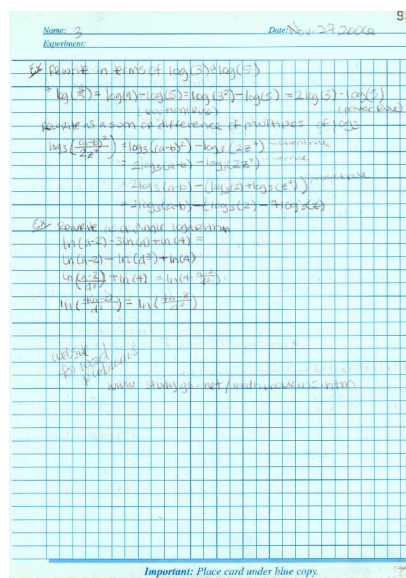 9
Name: 3 Date: Nov. 27 2002
Experiment:
Ex Rewrite in terms of log(3) & log(5)
* log(9/5) = log(9) - log(5) = log(3²) - log(5) = 2log(3) - log(5)
(quotient rule) (power rule)
Rewrite as a sum or difference of multiples of logs
log₃((a-b)²/2z⁷) = log₃(a-b)² - log₃(2z⁷)
= 2log₃(a-b) - log₃(2z⁷)
= 2log₃(a-b) - (log₃(2) + log₃(z⁷))
= 2log₃(a-b) - (log₃(2) - 7log₃(z)
Ex Rewrite as a single logarithm
ln(a-2) - 3ln(d) + ln(4) =
ln(a-2) - ln(d³) + ln(4)
ln(a-2/d³) + ln(4) = ln(4·
website
for word
problems
Important: Place card under blue copy.